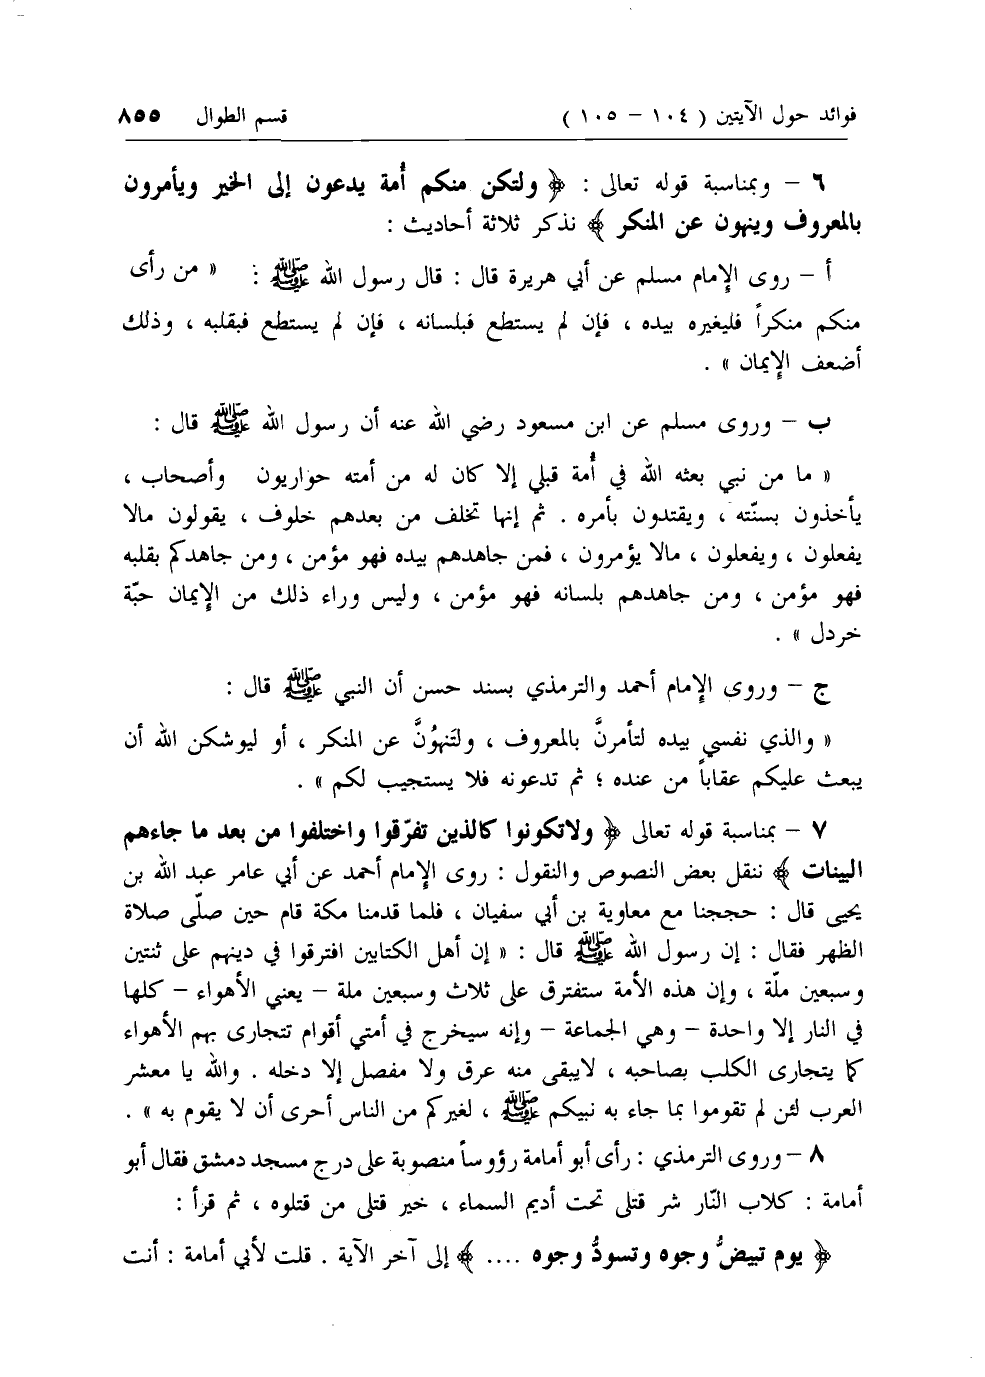 فوائد حول الآيتين ( ١٠٤ – ١٠٥ ) قسم الطوال ٨٥٥
٦ – وبمناسبة قوله تعالى : ﴿ ولتكن منكم أُمة يدعون إلى الخير ويأمرون
بالمعروف وينهون عن المنكر ﴾ نذكر ثلاثة أحاديث :
أ – روى الإمام مسلم عن أبي هريرة قال : قال رسول الله ﷺ : « من رأى
منكم منكراً فليغيره بيده ، فإن لم يستطع فبلسانه ، فإن لم يستطع فبقلبه ، وذلك
أضعف الإيمان » .
ب – وروى مسلم عن ابن مسعود رضي الله عنه أن رسول الله ﷺ قال :
« ما من نبي بعثه الله في أُمة قبلي إلا كان له من أمته حواريون وأصحاب ،
يأخذون بسنّته ، ويقتدون بأمره . ثم إنها تخلف من بعدهم خلوف ، يقولون مالا
يفعلون ، ويفعلون ، مالا يؤمرون ، فمن جاهدهم بيده فهو مؤمن ، ومن جاهدكم بقلبه
فهو مؤمن ، ومن جاهدهم بلسانه فهو مؤمن ، وليس وراء ذلك من الإيمان حبّة
خردل » .
ج – وروى الإمام أحمد والترمذي بسند حسن أن النبي ﷺ قال :
« والذي نفسي بيده لتأمرنَّ بالمعروف ، ولتَنهوُنَّ عن المنكر ، أو ليوشكن الله أن
يبعث عليكم عقاباً من عنده ؛ ثم تدعونه فلا يستجيب لكم » .
٧ – بمناسبة قوله تعالى ﴿ ولاتكونوا كالذين تفرّقوا واختلفوا من بعد ما جاءهم
البينات ﴾ ننقل بعض النصوص والنقول : روى الإمام أحمد عن أبي عامر عبد الله بن
يحيى قال : حججنا مع معاوية بن أبي سفيان ، فلما قدمنا مكة قام حين صلّى صلاة
الظهر فقال : إن رسول الله ﷺ قال : « إن أهل الكتابين افترقوا في دينهم على ثنتين
وسبعين ملّة ، وإن هذه الأمة ستفترق على ثلاث وسبعين ملة – يعني الأهواء – كلها
في النار إلا واحدة – وهي الجماعة – وإنه سيخرج في أمتي أقوام تتجارى بهم الأهواء
كما يتجارى الكلب بصاحبه ، لايبقى منه عرق ولا مفصل إلا دخله . والله يا معشر
العرب لئن لم تقوموا بما جاء به نبيكم ﷺ ، لغيركم من الناس أحرى أن لا يقوم به » .
٨ – وروى الترمذي : رأى أبو أمامة رؤوساً منصوبة على درج مسجد دمشق فقال أبو
أمامة : كلاب النّار شر قتلى تحت أديم السماء ، خير قتلى من قتلوه ، ثم قرأ :
﴿ يوم تبيضُّ وجوه وتسودُّ وجوه .... ﴾ إلى آخر الآية . قلت لأبي أمامة : أنت